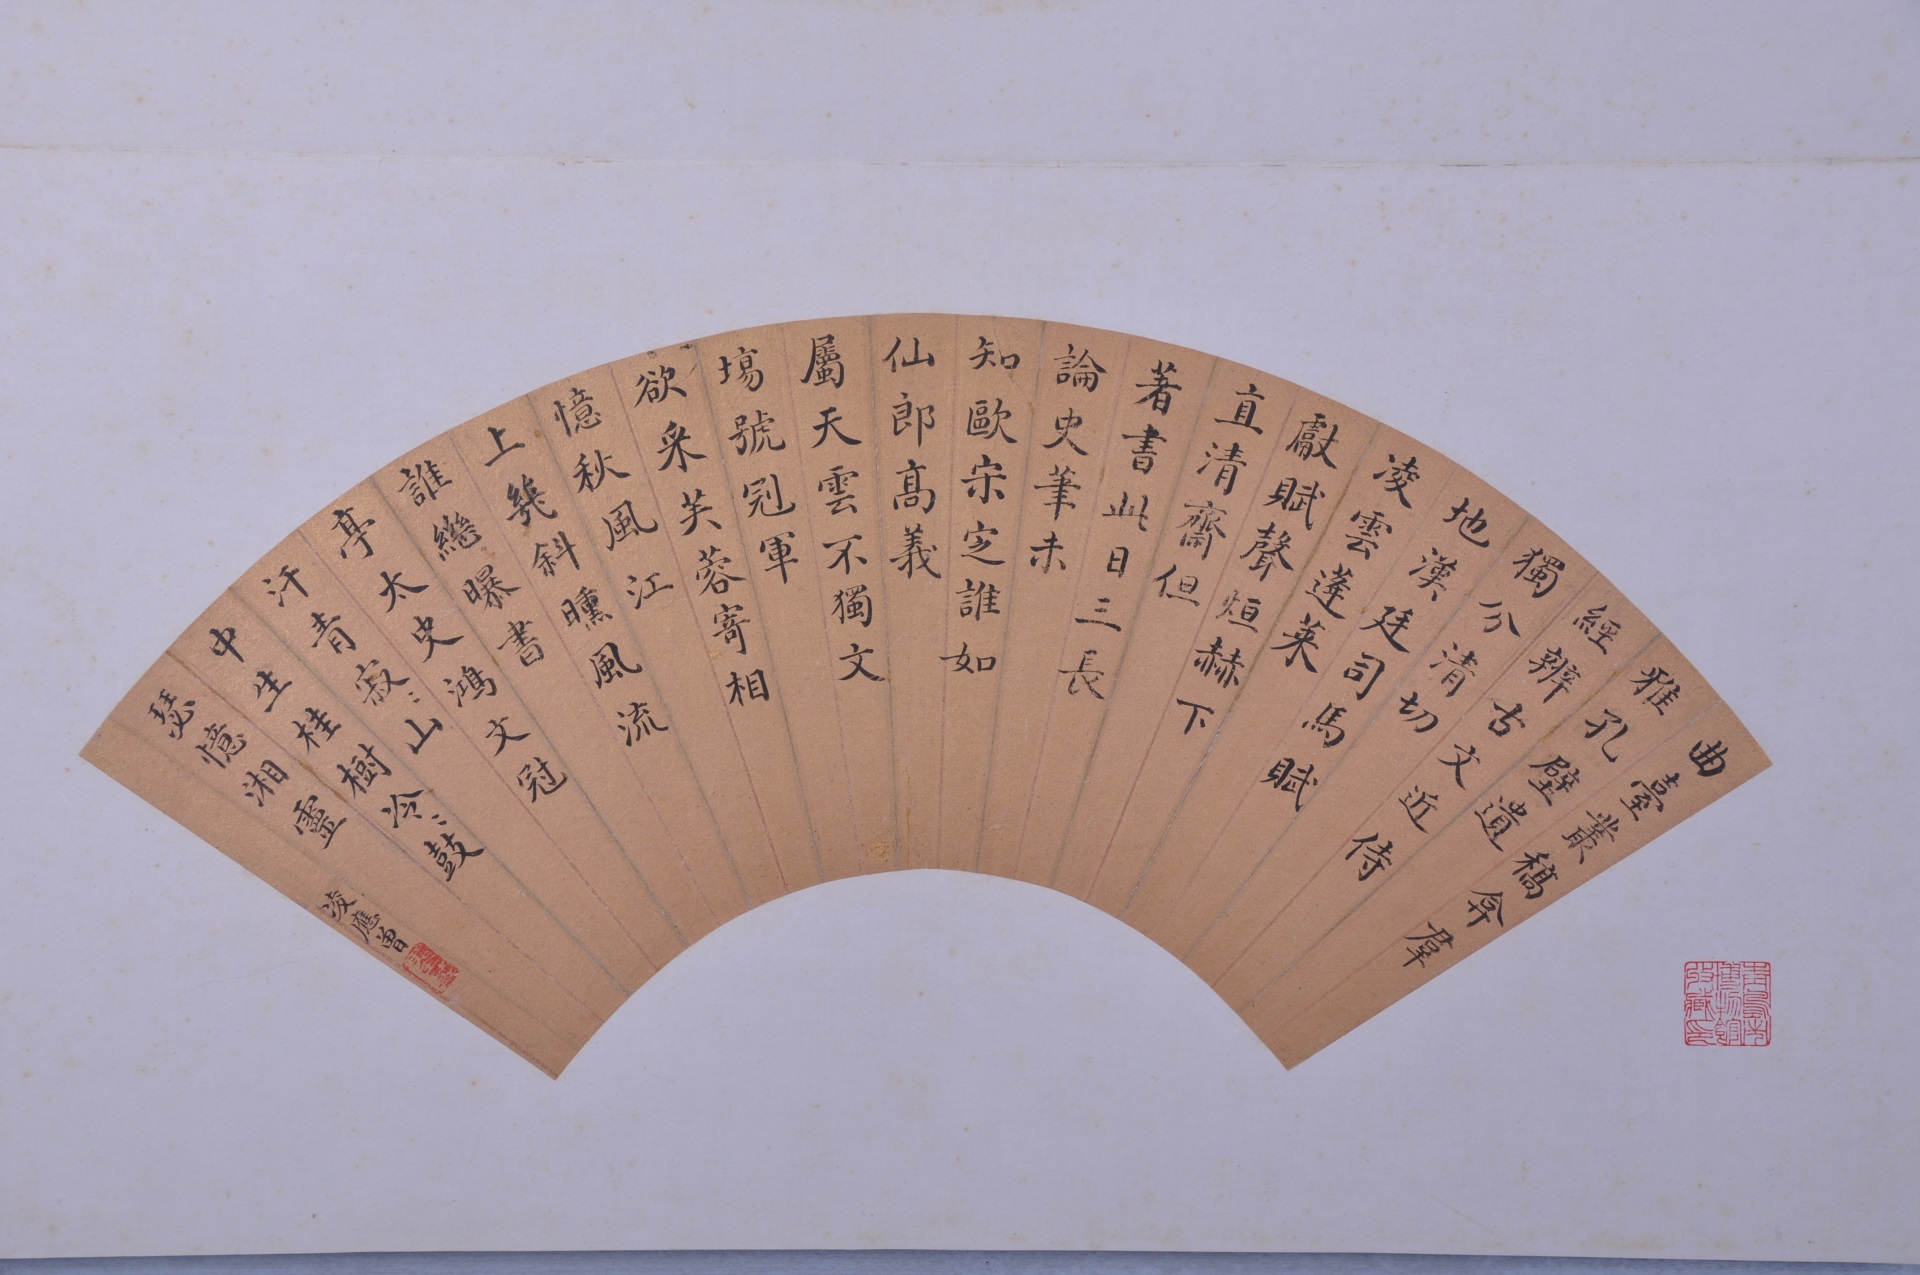 曲臺叢稿弇羣
雅孔壁遺
經辨古文近侍
獨分清切
地漢廷司馬賦
凌雲蓬萊
獻賦聲烜赫下
直清齋但
著書此日三長
論史筆未
知歐宋定誰如
仙郎高義
屬天雲不獨文
場號冠軍
欲采芙蓉寄相
憶秋風江
上幾斜曛風流
誰繼曝書
亭太史鴻文冠
汗青寂〻山
中生桂樹冷〻鼓
瑟憶湘靈
凌應曾
青島市
博物館
收藏印